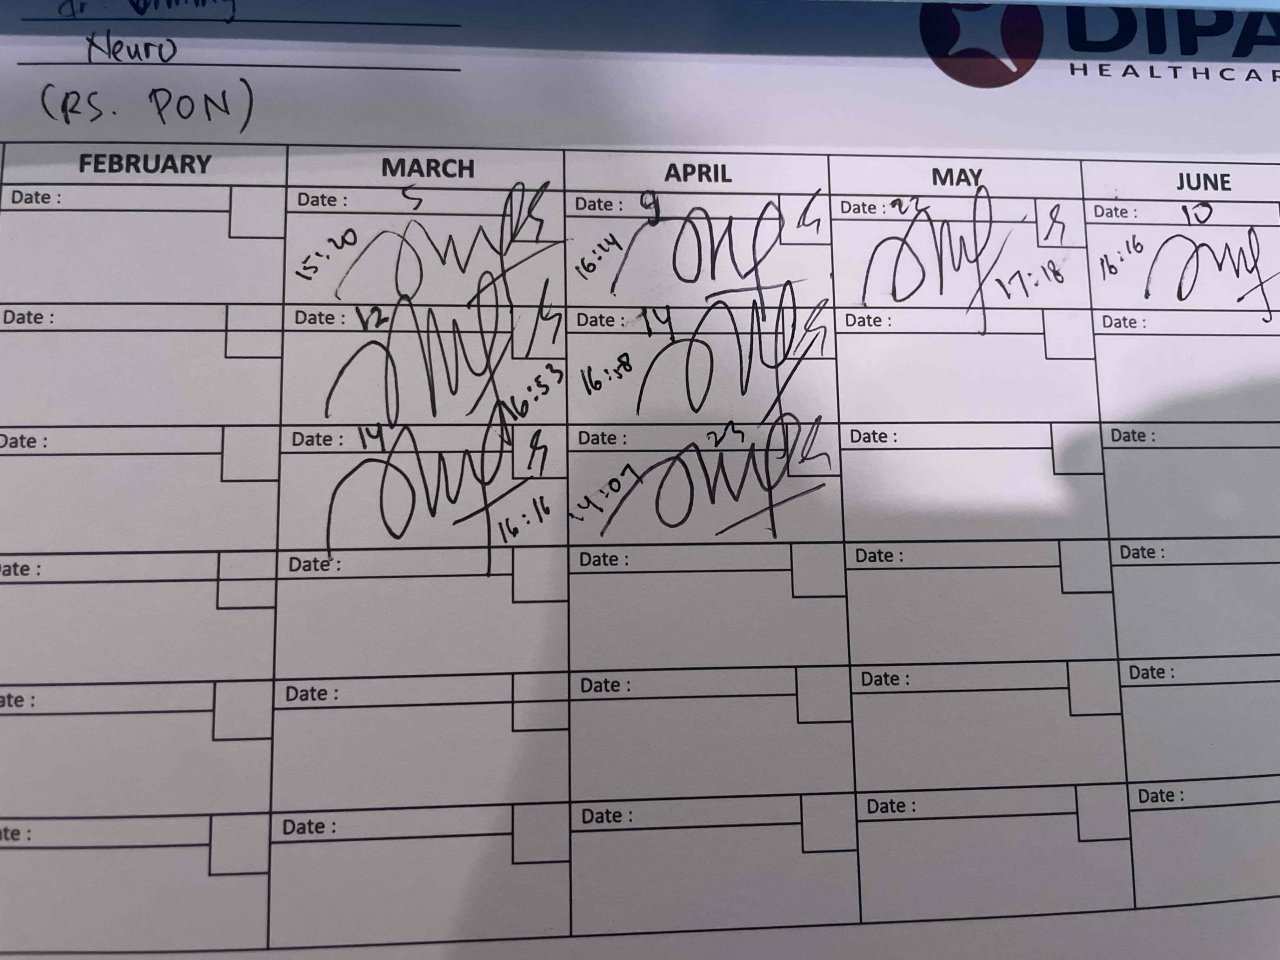 Neuro
(RS. PON)
DIPA
HEALTHCAR
FEBRUARY MARCH APRIL MAY JUNE
Date : Date : 5 Date : 9 Date : 22 Date : 10
15:20 16:24 17:18 16:16
Date : Date : 12 Date : 14 Date : Date :
16:53 16:58
Date : Date : 14 Date : 23 Date : Date :
16:16 14:07
ate : Date : Date : Date : Date :
ate : Date : Date : Date : Date :
te : Date : Date : Date : Date :